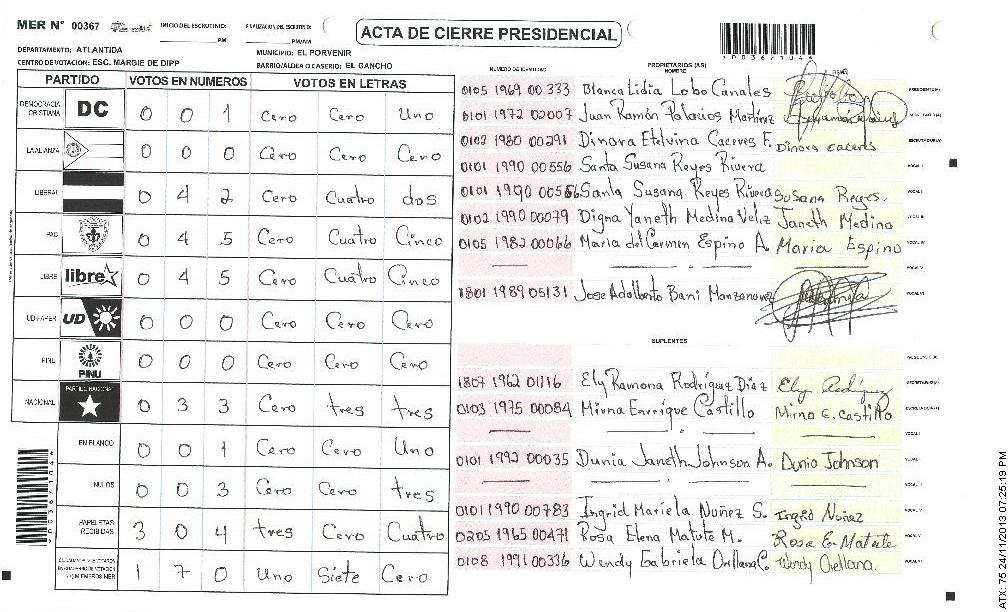 MER N° 00367 INICIO DEL ESCRUTINIO: ____PM FINALIZACION DEL ESCRUTINIO: ____PM/AM
ACTA DE CIERRE PRESIDENCIAL
DEPARTAMENTO: ATLANTIDA MUNICIPIO: EL PORVENIR
CENTRO DE VOTACION: ESC. MARGIE DE DIPP BARRIO/ALDEA O CASERIO: EL GANCHO
PARTIDO VOTOS EN NUMEROS VOTOS EN LETRAS
DEMOCRACIA CRISTIANA DC 0 0 1 Cero Cero Uno
LA ALIANZA 0 0 0 Cero Cero Cero
LIBERAL 0 4 2 Cero Cuatro dos
PAC 0 4 5 Cero Cuatro Cinco
LIBRE libre 0 4 5 Cero Cuatro Cinco
UD-FAPER UD 0 0 0 Cero Cero Cero
PINU PINU 0 0 0 Cero Cero Cero
NACIONAL PARTIDO NACIONAL 0 3 3 Cero tres tres
EN BLANCO 0 0 1 Cero Cero Uno
NULOS 0 0 3 Cero Cero tres
PAPELETAS RECIBIDAS 3 0 4 tres Cero Cuatro
1 7 0 Uno Siete Cero
NUMERO DE IDENTIDAD PROPIETARIOS (AS) NOMBRE FIRMA
0105 1969 00333 Blanca Lidia Lobo Canales PRESIDENTE(A)
0101 1972 02007 Juan Ramón Palacios Martínez SECRETARIO(A)
0102 1980 00291 Dinora Etelvina Caceres F. Dinora caceres ESCRUTADOR(A)
0101 1990 00556 Santa Susana Reyes Rivera VOCAL I
0101 1990 00556 Santa Susana Reyes Rivera Susana Reyes. VOCAL II
0102 1990 00079 Digna Yaneth Medina Veliz Janeth Medina VOCAL III
0105 1982 00066 Maria del Carmen Espino A. Maria Espino VOCAL IV
VOCAL V
1801 1989 05131 Jose Adalberto Bani Manzanarez VOCAL VI
SUPLENTES
PRESIDENTE(A)
1807 1962 01116 Ely Ramona Rodríguez Díaz Ely Rodíguez SECRETARIO(A)
0103 1975 00084 Mirna Enrrique Castillo Mirna E. Castillo ESCRUTADOR(A)
VOCAL I
0101 1992 00035 Dunia Janeth Johnson A. Dunia Johnson VOCAL II
0101 1990 00783 Ingrid Mariela Nuñez S. Ingrid Núñez VOCAL IV
0205 1965 00471 Rosa Elena Matute M. Rosa E. Matute VOCAL V
0108 1991 00336 Wendy Gabriela Orellana C. Wendy Orellana. VOCAL VI
ATX: 75 24/11/2013 07:25:19 PM